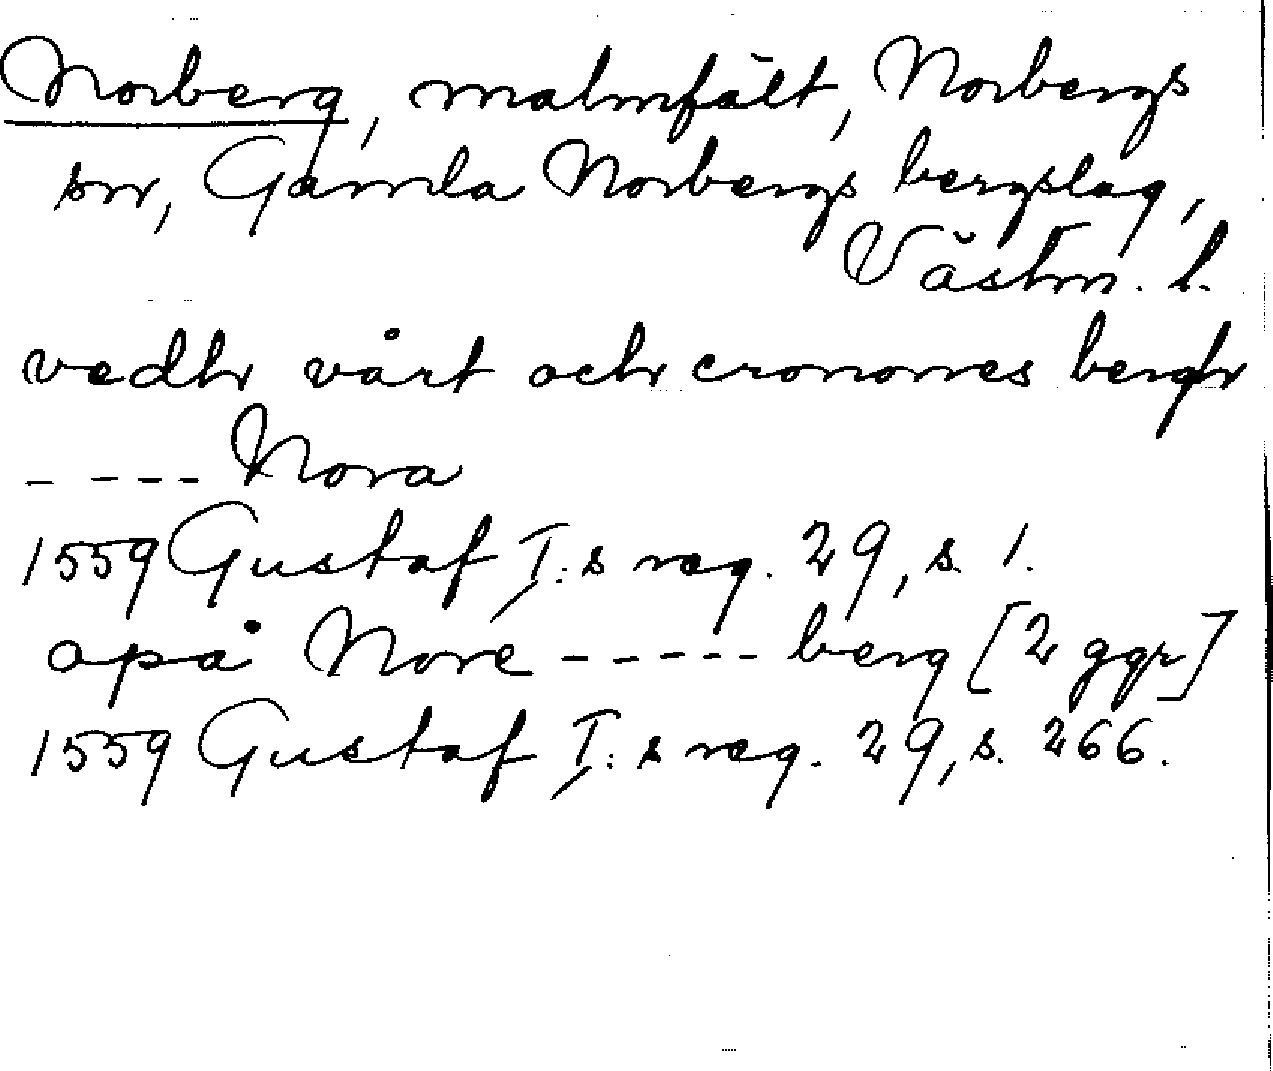 Norberg, malmfält, Norbergs
sn, Gamla Norbergs bergslag,
Västm. l.
vedh vårt och cronones bergh
_ _ _ _ Nora
1559 Gustaf I:s reg. 29, s. 1.
apå Nore - - - - - berg [2 ggr]
1559 Gustaf I:s reg. 29, s. 266.